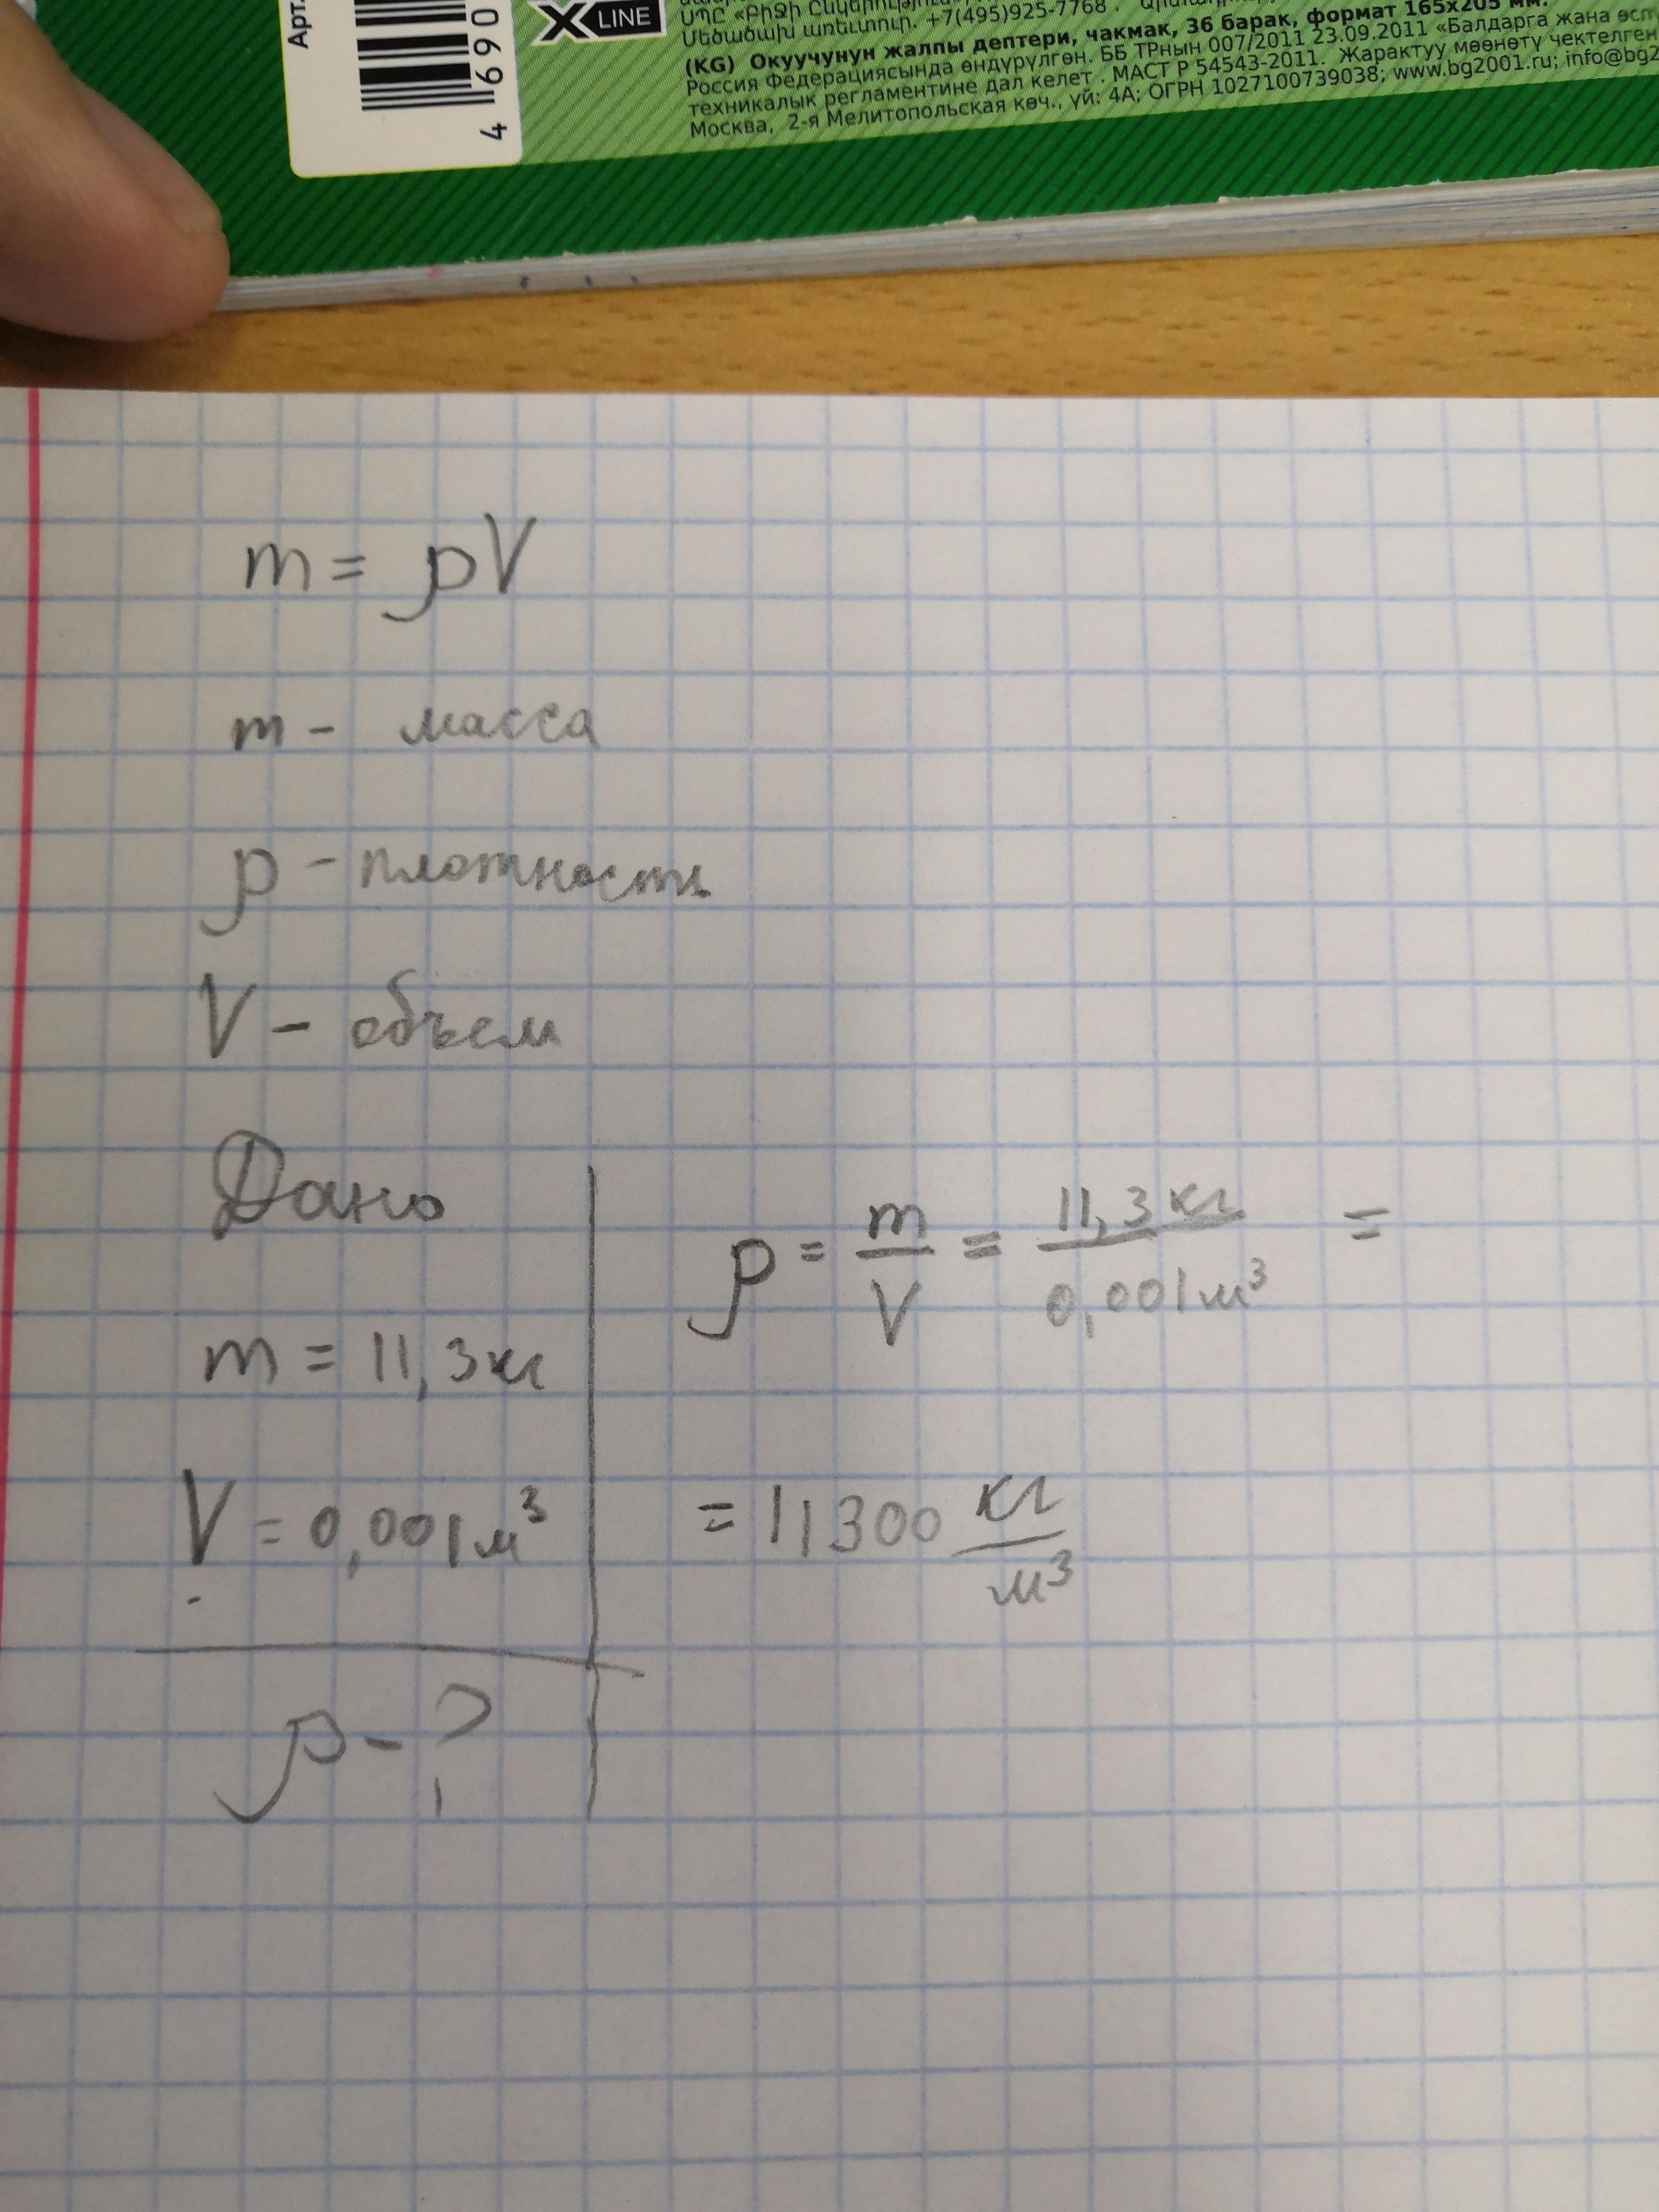 Арт.
4 690
X LINE
ՍՊԸ «Բիջի
Մեծածախ առևտուր. +7(495)925-7768
(KG) Окуучунун жалпы дептери, чакмак, 36 барак, формат 165х205 мм.
Россия Федерациясында өндүрүлгөн. ББ ТРнын 007/2011 23.09.2011 «Балдарга жана
техникалык регламентине дал келет . МАСТ Р 54543-2011. Жарактуу мөөнөтү чектелген
Москва, 2-я Мелитопольская көч., үй: 4А; ОГРН 1027100739038; www.bg2001.ru; info@bg2
m = ρV
m - масса
ρ - плотность
V - объем
Дано
m = 11,3 кг
V = 0,001 м³
ρ - ?
ρ = m/V = 11,3 кг/0,001 м³ =
= 11300 кг/м³